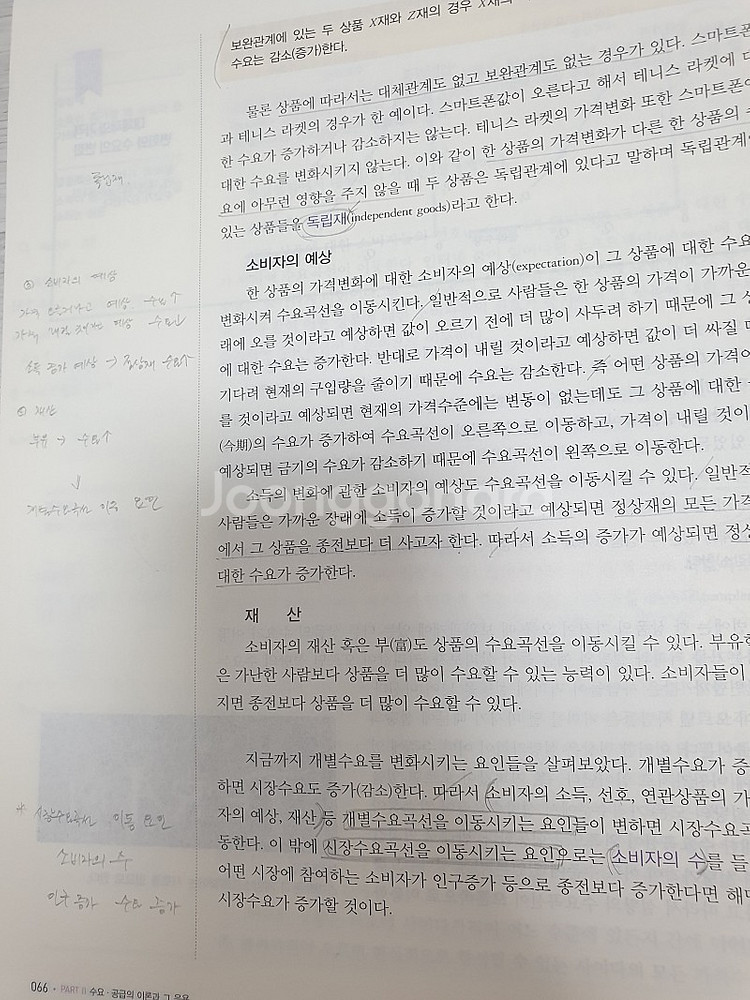 보완관계에 있는 두 상품 X재와 Z재의 경우 X재의
수요는 감소(증가)한다.
물론 상품에 따라서는 대체관계도 없고 보완관계도 없는 경우가 있다. 스마트폰
과 테니스 라켓의 경우가 한 예이다. 스마트폰값이 오른다고 해서 테니스 라켓에 대
한 수요가 증가하거나 감소하지는 않는다. 테니스 라켓의 가격변화 또한 스마트폰에
대한 수요를 변화시키지 않는다. 이와 같이 한 상품의 가격변화가 다른 한 상품의
요에 아무런 영향을 주지 않을 때 두 상품은 독립관계에 있다고 말하며 독립관계에
있는 상품들을 독립재(independent goods)라고 한다.
소비자의 예상
한 상품의 가격변화에 대한 소비자의 예상(expectation)이 그 상품에 대한 수요
변화시켜 수요곡선을 이동시킨다. 일반적으로 사람들은 한 상품의 가격이 가까운
래에 오를 것이라고 예상하면 값이 오르기 전에 더 많이 사두려 하기 때문에 그
에 대한 수요는 증가한다. 반대로 가격이 내릴 것이라고 예상하면 값이 더 싸질
기다려 현재의 구입량을 줄이기 때문에 수요는 감소한다. 즉 어떤 상품의 가격이
를 것이라고 예상되면 현재의 가격수준에는 변동이 없는데도 그 상품에 대한
(今期)의 수요가 증가하여 수요곡선이 오른쪽으로 이동하고, 가격이 내릴 것이
예상되면 금기의 수요가 감소하기 때문에 수요곡선이 왼쪽으로 이동한다.
소득의 변화에 관한 소비자의 예상도 수요곡선을 이동시킬 수 있다. 일반적
사람들은 가까운 장래에 소득이 증가할 것이라고 예상되면 정상재의 모든 가격
에서 그 상품을 종전보다 더 사고자 한다. 따라서 소득의 증가가 예상되면 정상
대한 수요가 증가한다.
재 산
소비자의 재산 혹은 부(富)도 상품의 수요곡선을 이동시킬 수 있다. 부유한
은 가난한 사람보다 상품을 더 많이 수요할 수 있는 능력이 있다. 소비자들이
지면 종전보다 상품을 더 많이 수요할 수 있다.
지금까지 개별수요를 변화시키는 요인들을 살펴보았다. 개별수요가 증
하면 시장수요도 증가(감소)한다. 따라서 소비자의 소득, 선호, 연관상품의 가
자의 예상, 재산 등 개별수요곡선을 이동시키는 요인들이 변하면 시장수요곡
동한다. 이 밖에 시장수요곡선을 이동시키는 요인으로는 소비자의 수를 들
어떤 시장에 참여하는 소비자가 인구증가 등으로 종전보다 증가한다면 해당
시장수요가 증가할 것이다.
⑤ 소비자의 예상
가격 오른다고 예상 수요↑
예상 수요↓
소득 증가 예상 → 정상재 수요↑
⑥ 재산
부유 → 수요↑
↓
개별수요곡선 이동 요인
* 시장수요곡선 이동 요인
소비자의 수
인구 증가 수요 증가
Joonggonara
066 • PART II 수요·공급의 이론과 그 응용